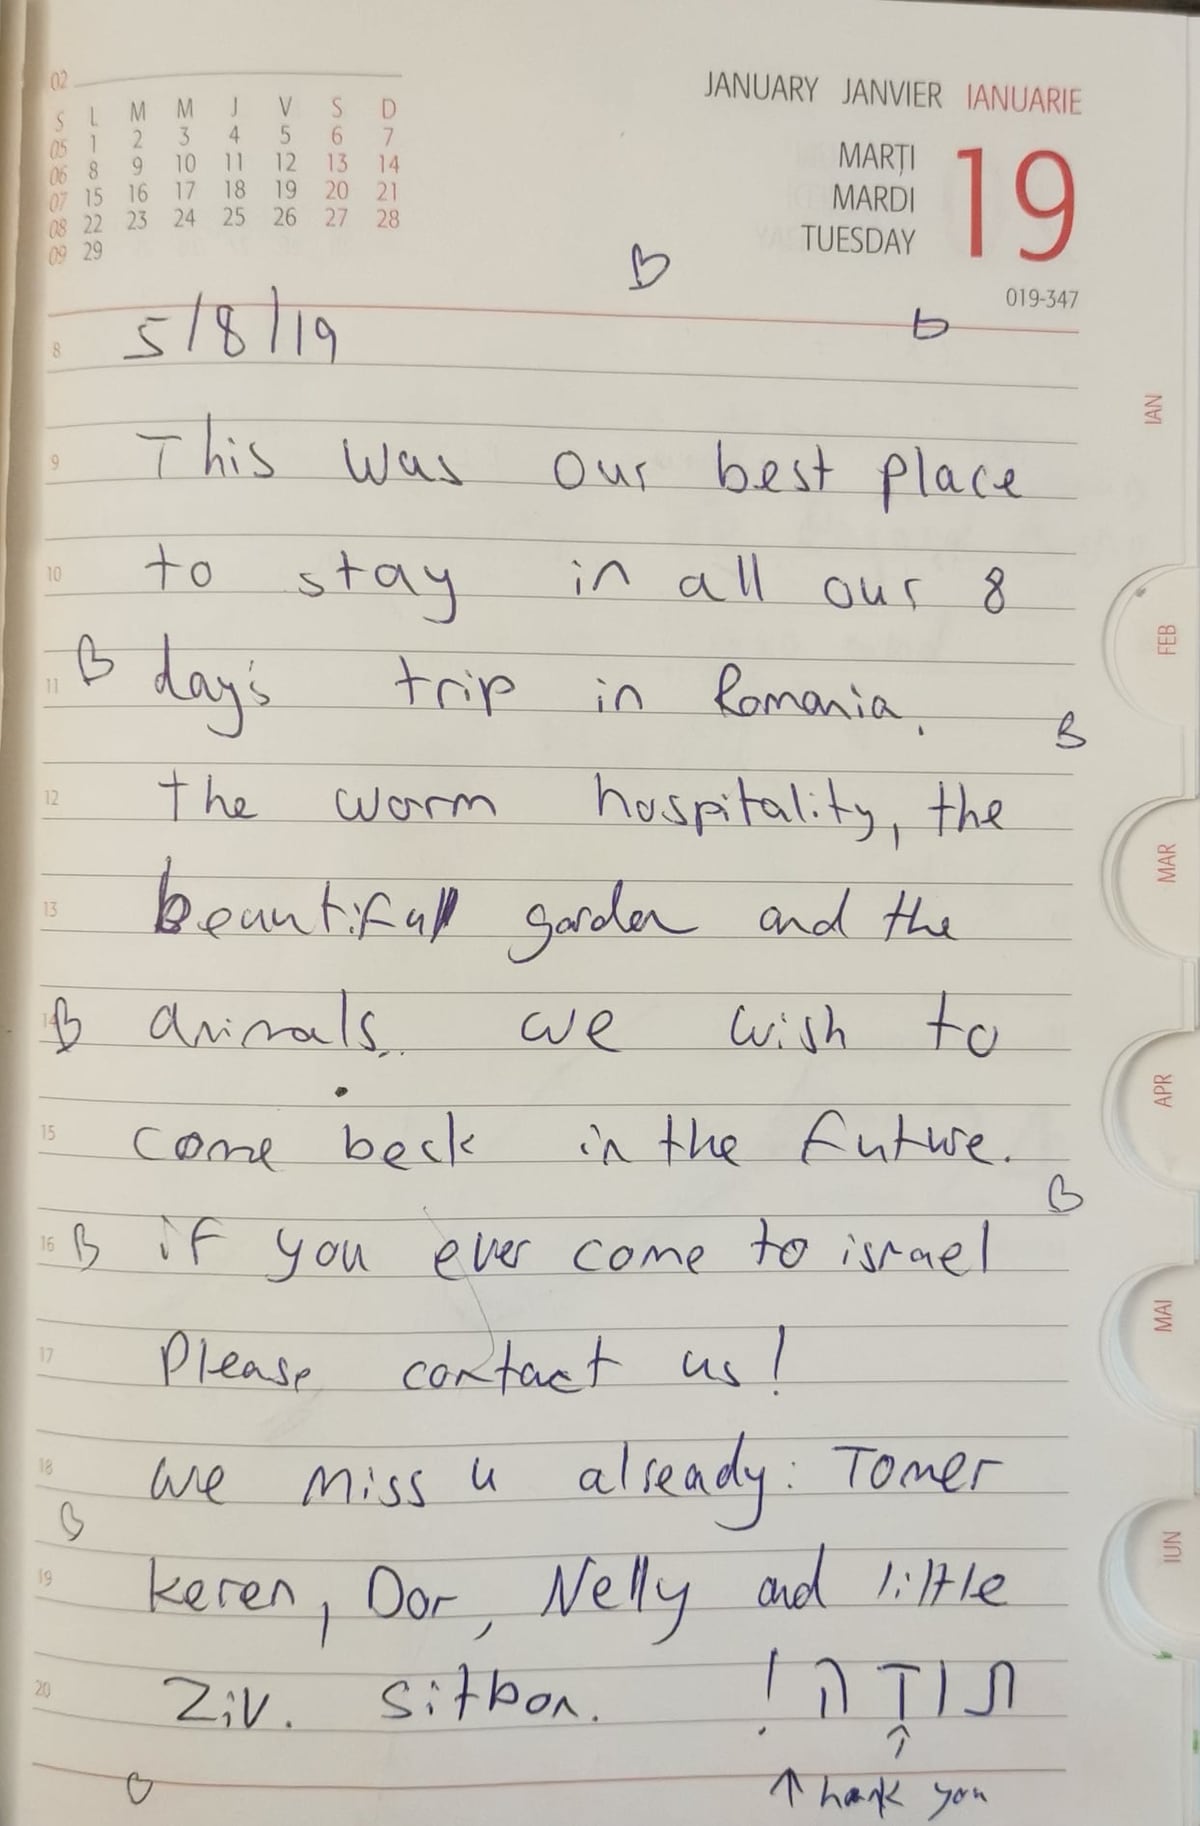 02
S L M M J V S D
05 1 2 3 4 5 6 7
06 8 9 10 11 12 13 14
07 15 16 17 18 19 20 21
08 22 23 24 25 26 27 28
09 29
JANUARY JANVIER IANUARIE
MARȚI
MARDI
TUESDAY
19
019-347
8 5/8/19
9 This was our best place
10 to stay in all our 8
11 day's trip in Romania.
12 the worm hospitality, the
13 beautifull garden and the
14 animals. we wish to
15 come beck in the future.
16 if you ever come to israel
17 Please contact us!
18 we miss u already: Tomer
19 keren, Dor, Nelly and little
20 Ziv. Sitbon. תודה!
↑ ↑hank you
IAN
FEB
MAR
APR
MAI
IUN